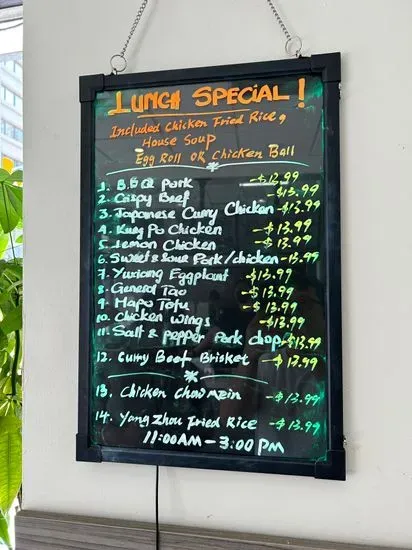 LUNCH SPECIAL!
Included Chicken Fried Rice,
House Soup
Egg Roll OR Chicken Ball
1. B.B.Q Pork -$13.99
2. Crispy Beef -$13.99
3. Japanese Curry Chicken -$13.99
4. Kung Po Chicken -$13.99
5. Lemon Chicken -$13.99
6. Sweet & Sour Pork/chicken -13.99
7. Yuxiang Eggplant -$13.99
8. General Tao -$13.99
9. Mapo Tofu -$13.99
10. Chicken wings -$13.99
11. Salt & pepper Pork chop -$13.99
12. Curry Beef Brisket -$13.99
13. Chicken Chow Mein -$13.99
14. Yang Zhou Fried Rice -$13.99
11:00AM - 3:00PM